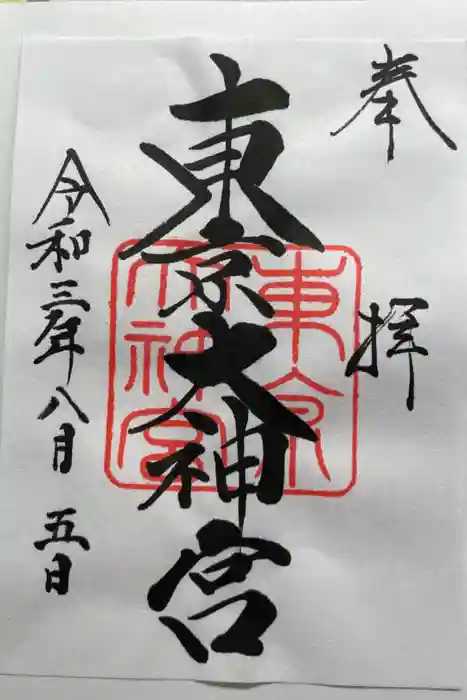 奉拝
東京大神宮
東京大神宮
令和三年八月五日